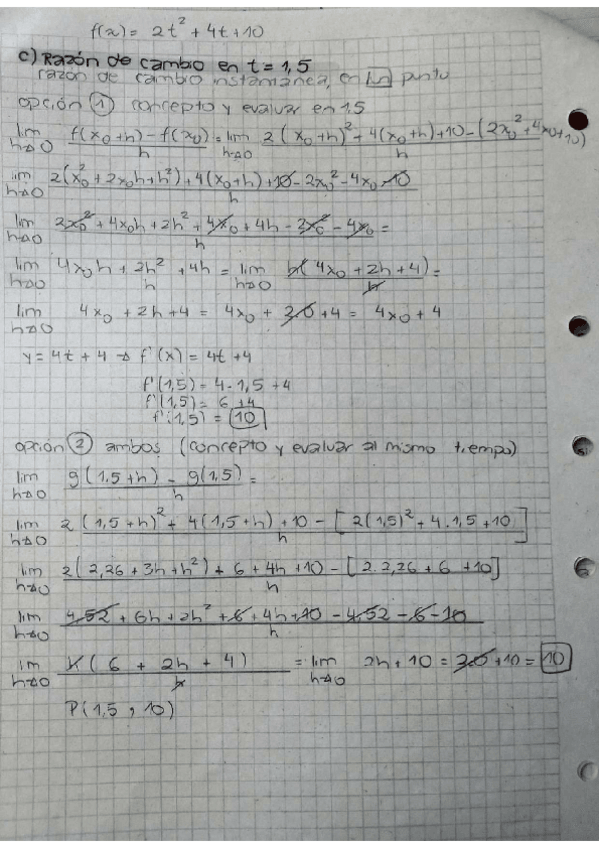 f(x) = 2t² + 4t + 10
c) Razón de cambio en t = 1,5
razón de cambio instantánea, en un punto
opción 1 concepto y evaluar en 1,5
lim h→0 f(x₀+h) - f(x₀) / h = lim h→0 2(x₀+h)² + 4(x₀+h) + 10 - (2x₀² + 4x₀ + 10) / h
lim h→0 2(x₀² + 2x₀h + h²) + 4(x₀+h) + 10 - 2x₀² - 4x₀ - 10 / h
lim h→0 2x₀² + 4x₀h + 2h² + 4x₀ + 4h - 2x₀² - 4x₀ / h =
lim h→0 4x₀h + 2h² + 4h / h = lim h→0 h(4x₀ + 2h + 4) / h =
lim h→0 4x₀ + 2h + 4 = 4x₀ + 2.0 + 4 = 4x₀ + 4
y = 4t + 4 → f'(x) = 4t + 4
f'(1,5) = 4 . 1,5 + 4
f'(1,5) = 6 + 4
f'(1,5) = 10
opción 2 ambos (concepto y evaluar al mismo tiempo)
lim h→0 g(1.5+h) - g(1,5) / h =
lim h→0 2(1,5+h)² + 4(1,5+h) + 10 - [2(1,5)² + 4.1,5 + 10] / h
lim h→0 2(2,26 + 3h + h²) + 6 + 4h + 10 - [2.2,26 + 6 + 10] / h
lim h→0 4,52 + 6h + 2h² + 6 + 4h + 10 - 4,52 - 6 - 10 / h
lim h→0 h(6 + 2h + 4) / h = lim h→0 2h + 10 = 2.0 + 10 = 10
P(1,5 , 10)